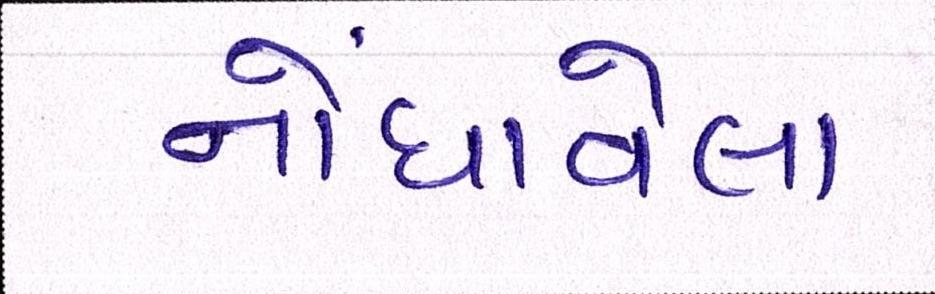 નોંધાવેલા